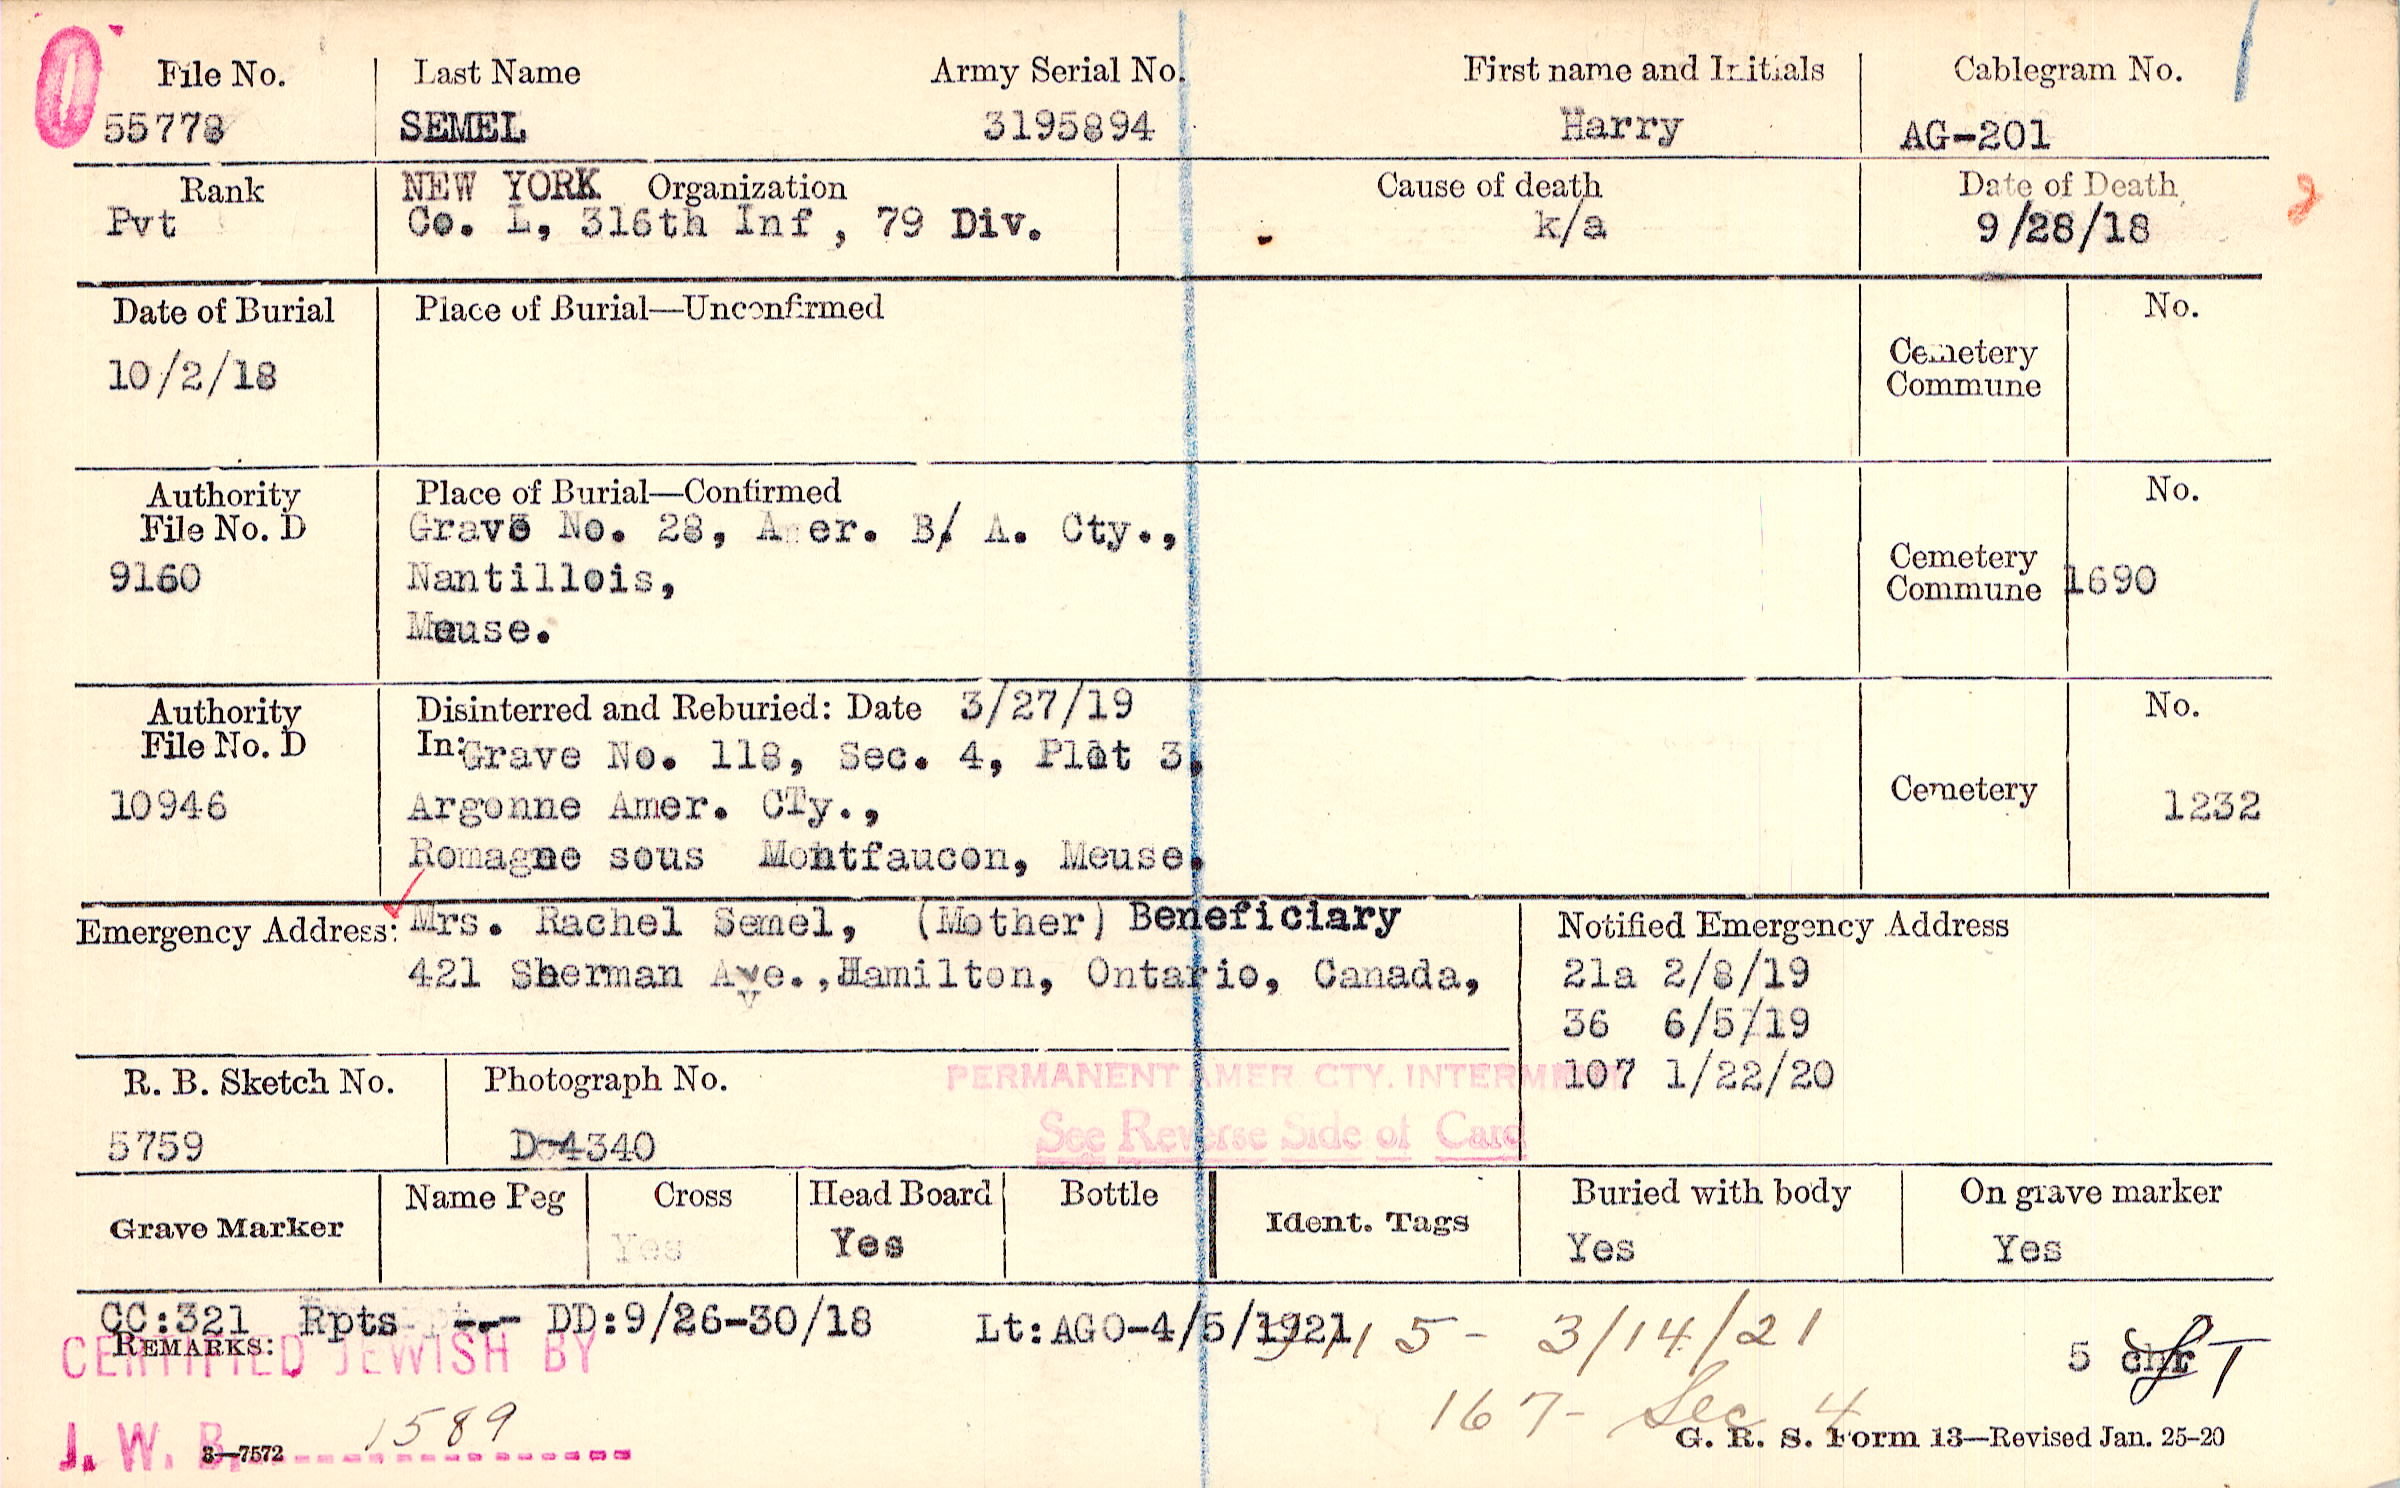 File No. Last Name Army Serial No. First name and Initials Cablegram No.
55778 SEMEL 3195894 Harry AG-201
Rank NEW YORK Organization Cause of death Date of Death
Pvt Co. L, 316th Inf , 79 Div. k/a 9/28/18
Date of Burial Place of Burial—Unconfirmed No.
10/2/18 Cemetery
Commune
Authority Place of Burial—Confirmed No.
File No. D Grave No. 28, Amer. B/ A. Cty.,
9160 Nantillois, Cemetery
Commune 1690
Meuse.
Authority Disinterred and Reburied: Date 3/27/19 No.
File No. D In: Grave No. 118, Sec. 4, Plot 3,
10946 Argonne Amer. CTy., Cemetery 1232
Romagne sous Montfaucon, Meuse.
Emergency Address: Mrs. Rachel Semel, (Mother) Beneficiary Notified Emergency Address
421 Sherman Ave., Hamilton, Ontario, Canada, 21a 2/8/19
36 6/5/19
R. B. Sketch No. Photograph No. PERMANENT AMER. CTY. INTERMENT 107 1/22/20
5759 D-4340 See Reverse Side of Card
Grave Marker Name Peg Cross Head Board Bottle Ident. Tags Buried with body On grave marker
Yes Yes Yes Yes
CC:321 Rpts DD:9/26-30/18 Lt:AGO-4/5/1921 5- 3/14/21
REMARKS: 5 chr
CERTIFIED JEWISH BY
167- Sec 4
J. W. B. 1589
3—7572 G. R. S. Form 13—Revised Jan. 25-20